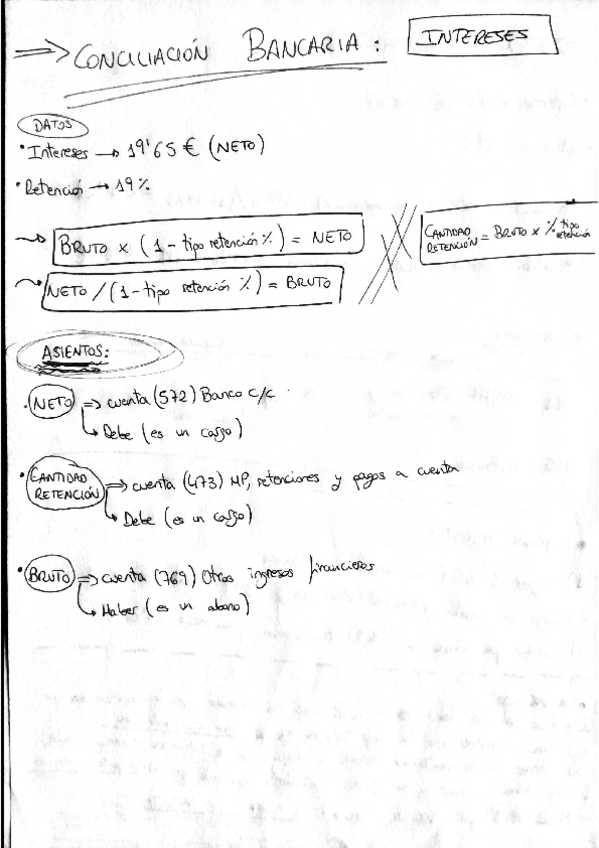 => CONCILIACIÓN BANCARIA: INTERESES
DATOS
• Intereses → 19'65 € (NETO)
• Retención → 19 %
→ BRUTO x (1 - tipo retención %) = NETO
CANTIDAD RETENCIÓN = BRUTO x % tipo retención
→ NETO / (1 - tipo retención %) = BRUTO
ASIENTOS:
• NETO => cuenta (572) Banco c/c
↳ Debe (es un cargo)
• CANTIDAD RETENCIÓN => cuenta (473) HP, retenciones y pagos a cuenta
↳ Debe (es un cargo)
• BRUTO => cuenta (769) Otros ingresos financieros
↳ Haber (es un abono)